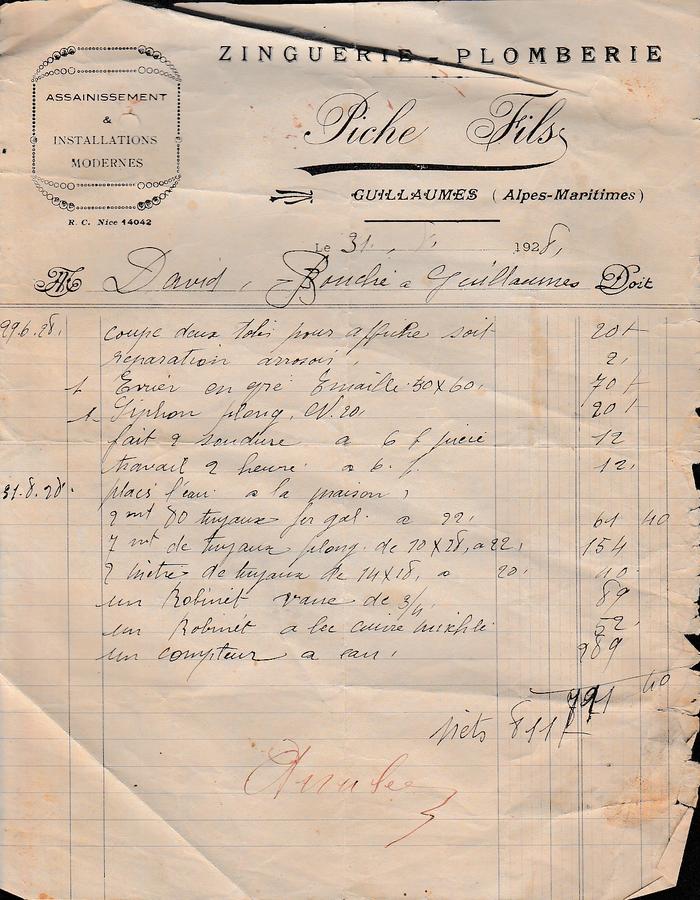 ZINGUERIE - PLOMBERIE
ASSAINISSEMENT
&
INSTALLATIONS
MODERNES
R. C. Nice 14042
Piche Fils
GUILLAUMES (Alpes-Maritimes)
Le 31. 8. 1928,
M David, Bouché a Guillaumes Doit
coupe deux pour soit 20 f
réparation arrosoir, 2,
1 Evier en gré Emaillé 50x60, 70 f
1 Siphon plong. N. 20, 20 f
fait 2 soudure a 6 f pièce 12
travail 2 heure a 6. f. 12,
31.8.28. placé l'eau a la maison,
2 mt 80 tuyaux fer gal. a 22, 61 40
7 mt de tuyaux plong. de 20x28, a 22, 154
2 mètre de tuyaux de 14x18, a 20, 40
un Robinet vane de 3/4, 89
un Robinet a bec cuivre 52,
un compteur a eau, 289
791 40
nets 811 f
Annulee